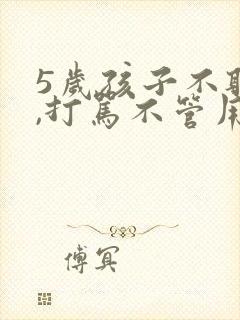 5歲孩子不
,打罵不管
傅冥